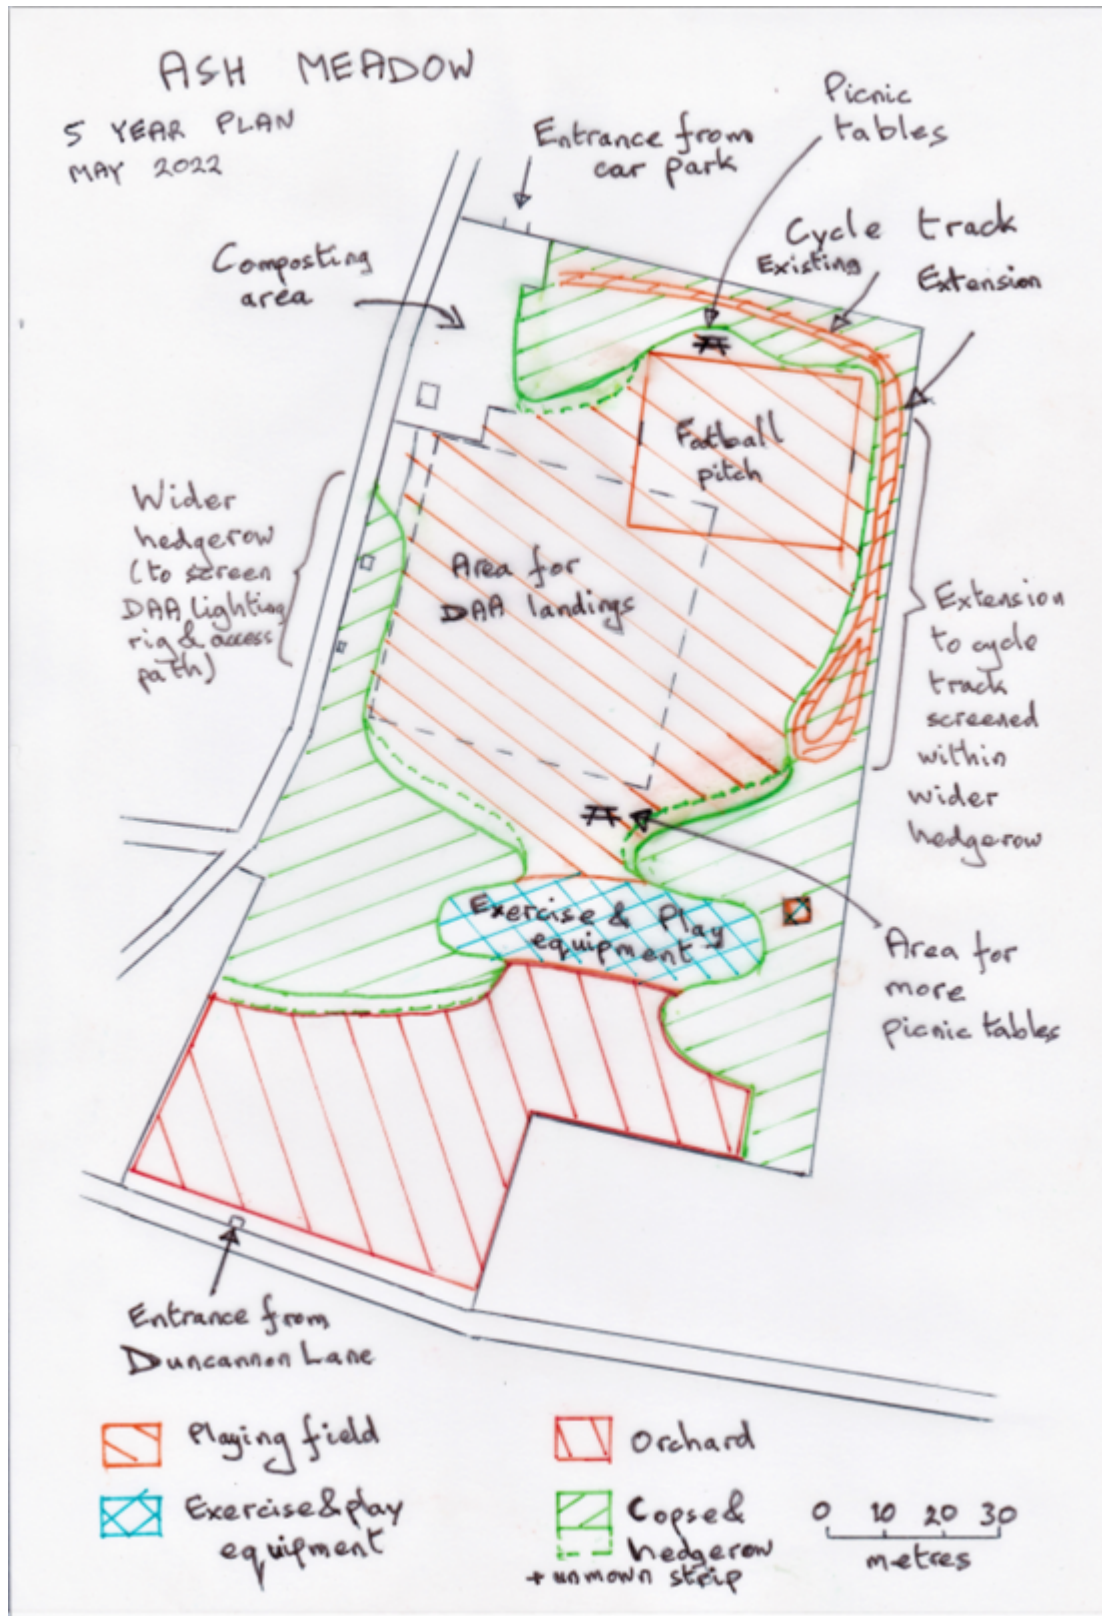 ASH MEADOW
5 YEAR PLAN
MAY 2022
Picnic
tables
Entrance from
car park
Cycle track
Existing
Extension
Composting
area
Football
pitch
Wider
hedgerow
(to screen
DAA lighting
rig & access
path)
Area for
DAA landings
Extension
to cycle
track
screened
within
wider
hedgerow
Exercise & Play
equipment
Area for
more
picnic tables
Entrance from
Duncannon Lane
Playing field
Orchard
Exercise & play
equipment
Copse &
hedgerow
+ unmown strip
0 10 20 30
metres